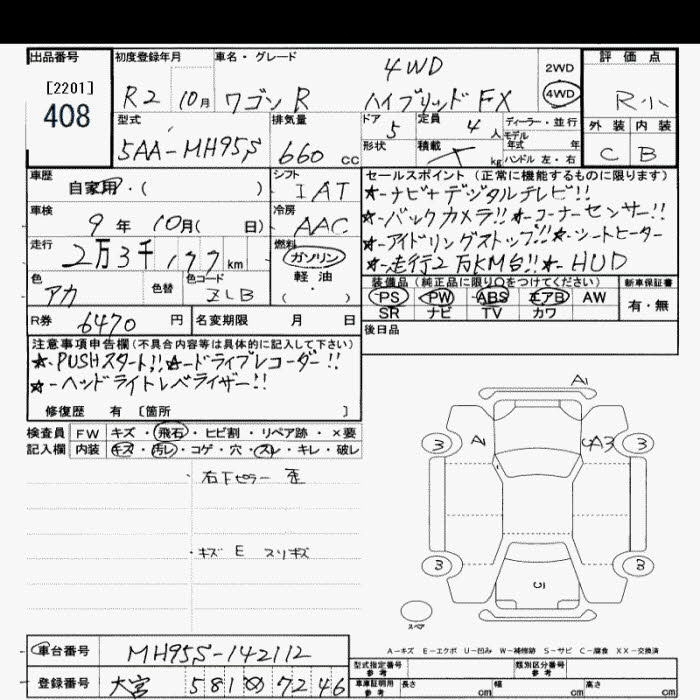 出品番号 初度登録年月 車名・グレード 4WD 2WD 評価点
[2201]
408 R2 10月 ワゴンR ハイブリッド FX 4WD R小
型式 排気量 ドア 5 定員 4人 ディーラー・並行 外装 内装
5AA-MH95S 660 cc 形状 積載 kg モデル年式 年 ハンドル 左・右 C B
車歴 自家用・( ) シフト IAT セールスポイント (正常に機能するものに限ります)
★-ナビ+デジタルテレビ!!
車検 9年 10月( 日) 冷房 AAC ★-バックカメラ!! ★-コーナーセンサー!!
走行 2万3千177km 燃料 ガソリン ★-アイドリングストップ!! ★-シートヒーター
軽油 ★-走行2万KM台!! ★-HUD
色 アカ 色替 色コード ZLB ( )
装備品 (純正品に限り○をつけてください) 新車保証書
PS PW ABS エアB AW 有・無
SR ナビ TV カワ
R券 6470円 名変期限 月 日 後日品
注意事項申告欄(不具合内容等は具体的に記入して下さい)
★-PUSHスタート!! ★-ドライブレコーダー!!
★-ヘッドライトレベライザー!!
修復歴 有 [箇所 ]
検査員 FW キズ・飛石・ヒビ割・リペア跡・×要
記入欄 内装 キズ・汚レ・コゲ・穴・スレ・キレ・破レ
・右下ピラー 歪
・キズ E スリキズ
A1
3 A1 A3 3
3 3
C1
スペア
A-キズ E-エクボ U-凹み W-補修跡 S-サビ C-腐食 XX-交換済
車台番号 MH95S-142112 型式指定番号 参考 類別区分番号 参考
登録番号 大宮 581 72 46 車庫証明用 参考 長さ cm 幅 cm 高さ cm